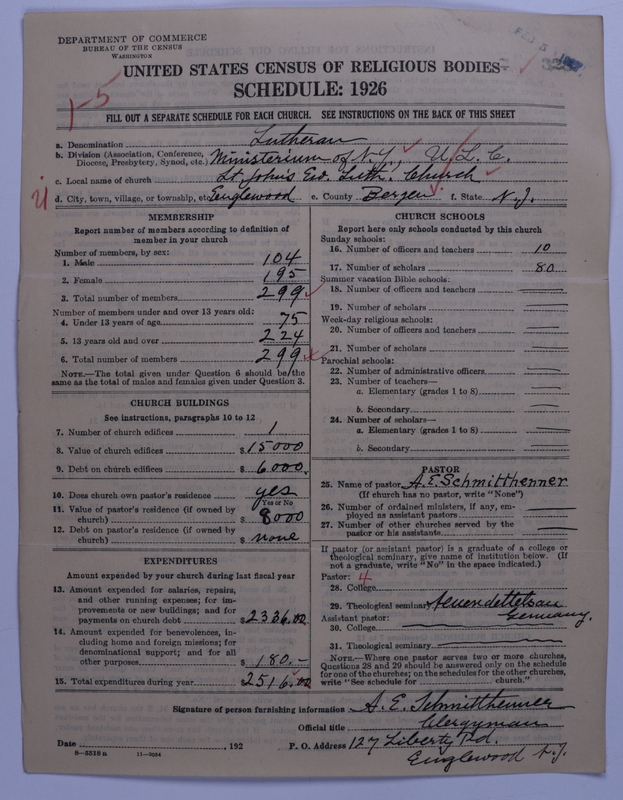 DEPARTMENT OF COMMERCE
BUREAU OF THE CENSUS
WASHINGTON
UNITED STATES CENSUS OF RELIGIOUS BODIES
SCHEDULE: 1926
1-5
FILL OUT A SEPARATE SCHEDULE FOR EACH CHURCH. SEE INSTRUCTIONS ON THE BACK OF THIS SHEET
a. Denomination Lutheran
b. Division (Association, Conference, Diocese, Presbytery, Synod, etc.) Ministerium of N.Y., U.L.C.
c. Local name of church St. John's Evd. Luth. Church
d. City, town, village, or township, etc. Englewood e. County Bergen f. State N.J.
MEMBERSHIP
Report number of members according to definition of
member in your church
Number of members, by sex:
1. Male 104
2. Female 195
3. Total number of members 299
Number of members under and over 13 years old:
4. Under 13 years of age 75
5. 13 years old and over 224
6. Total number of members 299
NOTE.—The total given under Question 6 should be the
same as the total of males and females given under Question 3.
CHURCH BUILDINGS
See instructions, paragraphs 10 to 12
7. Number of church edifices 1
8. Value of church edifices $15000
9. Debt on church edifices $6000.
10. Does church own pastor's residence yes
Yes or No
11. Value of pastor's residence (if owned by
church) $8000
12. Debt on pastor's residence (if owned by
church) $none
EXPENDITURES
Amount expended by your church during last fiscal year
13. Amount expended for salaries, repairs,
and other running expenses; for im-
provements or new buildings; and for
payments on church debt $2336.00
14. Amount expended for benevolences, in-
cluding home and foreign missions; for
denominational support; and for all
other purposes $180.-
15. Total expenditures during year $2516.00
CHURCH SCHOOLS
Report here only schools conducted by this church
Sunday schools:
16. Number of officers and teachers 10
17. Number of scholars 80
Summer vacation Bible schools:
18. Number of officers and teachers
19. Number of scholars
Week-day religious schools:
20. Number of officers and teachers
21. Number of scholars
Parochial schools:
22. Number of administrative officers
23. Number of teachers—
a. Elementary (grades 1 to 8)
b. Secondary
24. Number of scholars—
a. Elementary (grades 1 to 8)
b. Secondary
PASTOR
25. Name of pastor A.E. Schmitthenner
(If church has no pastor, write "None")
26. Number of ordained ministers, if any, em-
ployed as assistant pastors
27. Number of other churches served by the
pastor or his assistants
If pastor (or assistant pastor) is a graduate of a college or
theological seminary, give name of institution below. (If
not a graduate, write "No" in the space indicated.)
Pastor: 4
28. College
29. Theological seminary Neuendettelsau
Assistant pastor: Germany.
30. College
31. Theological seminary
NOTE.—Where one pastor serves two or more churches,
Questions 28 and 29 should be answered only on the schedule
for one of the churches; on the schedules for the other churches,
write "See schedule for church."
Signature of person furnishing information A. E. Schmitthenner
Official title Clergyman
Date , 192 P. O. Address 127 Liberty Rd.
Englewood N.J.
8—5518 a 11—9084